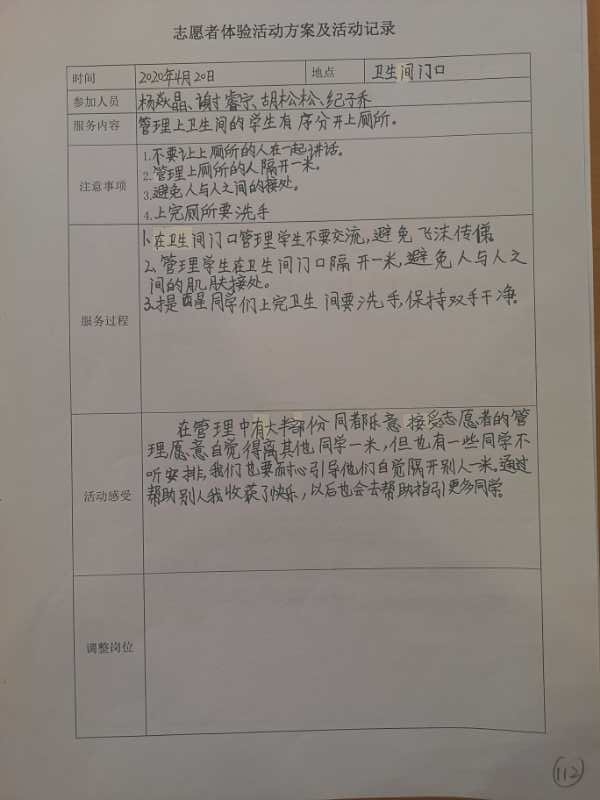 志愿者体验活动方案及活动记录
时间 2020年4月20日 地点 卫生间门口
参加人员 杨焱晶、谢睿宁、胡松松、纪子乔
服务内容 管理上卫生间的学生有序分开上厕所。
注意事项
1.不要让上厕所的人在一起讲话。
2.管理上厕所的人隔开一米。
3.避免人与人之间的接处。
4.上完厕所要洗手
服务过程
1.在卫生间门口管理学生不要交流,避免飞沫传播
2.管理学生在卫生间门口隔开一米,避免人与人之
间的肌肤接处。
3.提醒同学们上完卫生间要洗手,保持双手干净。
活动感受
在管理中有大半部份同都乐意接受志愿者的管
理愿意自觉得离其他同学一米,但也有一些同学不
听安排,我们也要耐心引导他们自觉隔开别人一米。通过
帮助别人我收获了快乐,以后也会去帮助指引更多同学。
调整岗位
112